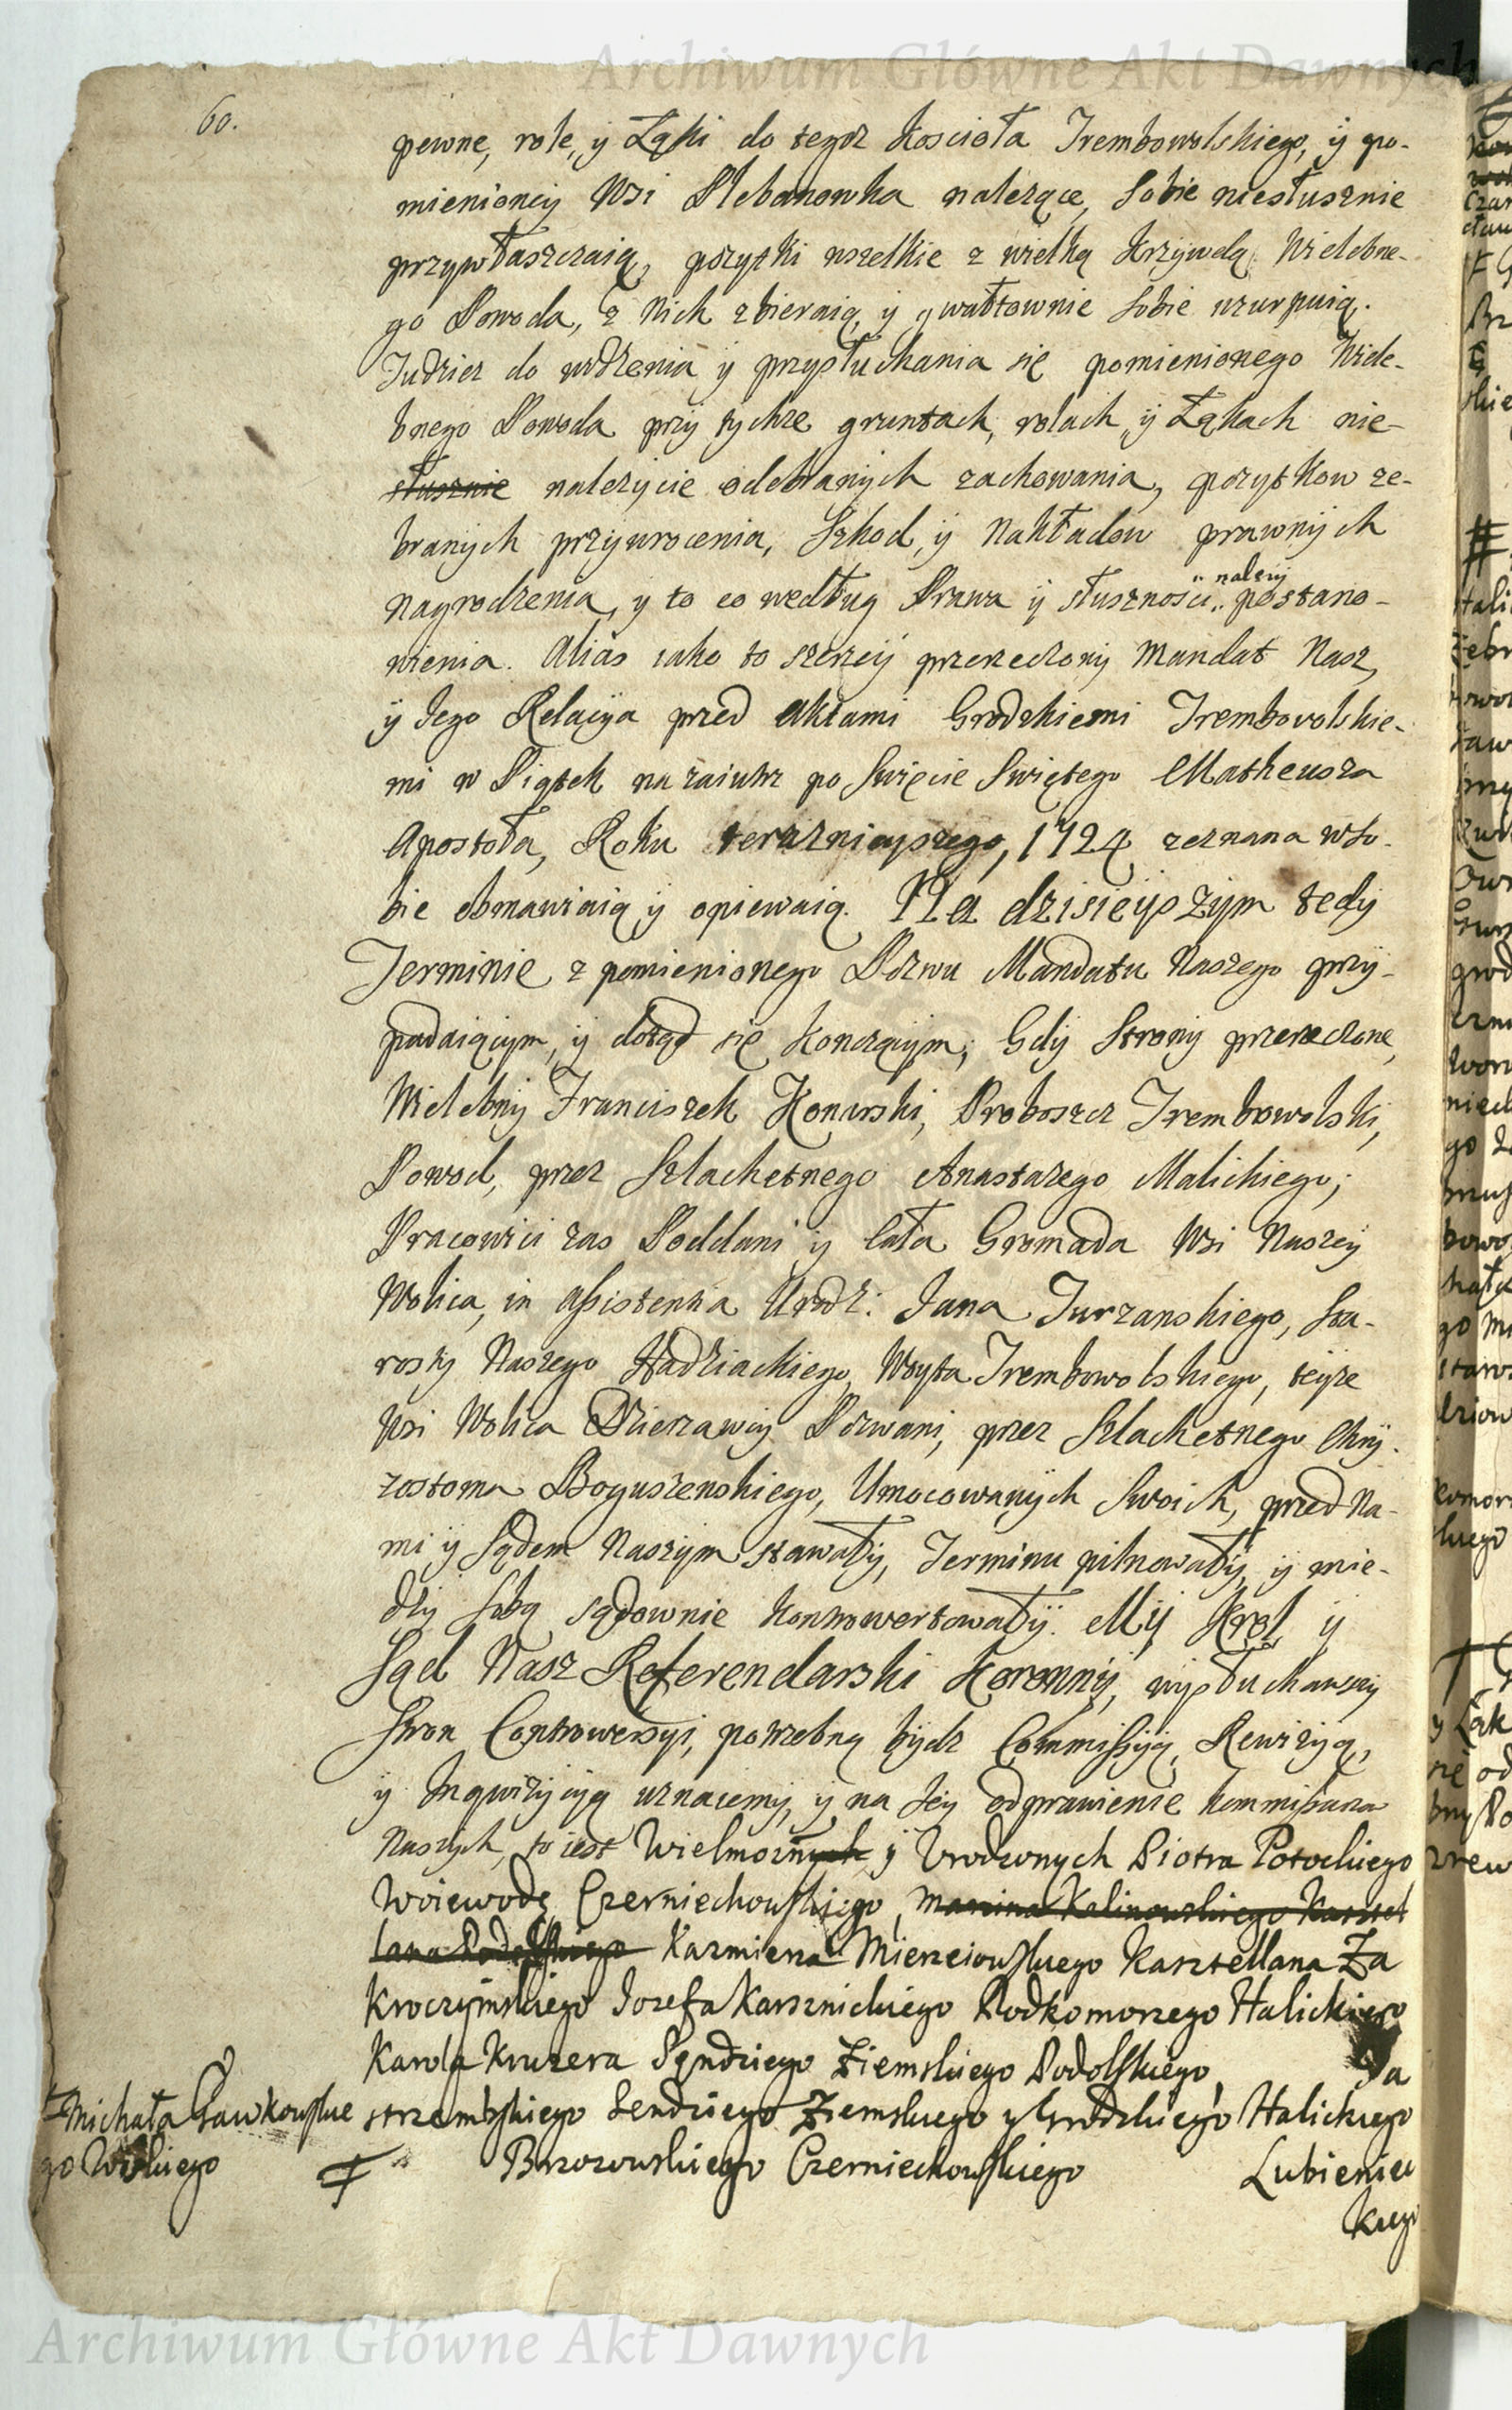 Archiwum Główne Akt Dawnych
60.
pewne, role, ÿ Łąki do tegoż Kościoła Trembowolskiego, ÿ po-
mienioneÿ Wsi Plebanowka należące, Sobie niesłusznie
przywłaszczaią, pożytki wszelkie z wielką Krzÿwdą Wielebne-
go Powoda, z Nich zbieraią, ÿ gwałtownie Sobie uzurpuią.
Tudzież do widzenia ÿ przysłuchania się pomienionego Wiele-
bnego Powoda przÿ tychże gruntach, rolach, ÿ Łąkach nie-
słusznie należÿcie odebranÿch zachowania, pożytkow ze-
branÿch przÿwrocenia, Szkod, ÿ Nakładow prawnÿch
nagrodzenia, y to co według Prawa ÿ słusznosci „należÿ" postano-
wienia. Alias iako to szerzeÿ przerzeczonÿ Mandat Nasz,
ÿ Jego Relacÿa przed Aktami Grodzkiemi Trembovolskie-
mi w Piątek nazaiutrz po Swięcie Swiętego Matheusza
Apostoła, Roku teraznieyszego, 1724 zeznana w So-
bie obmawiaią ÿ opiewaią. Na dzisieÿszÿm tedÿ
Terminie z pomienionego Pozwu Mandatu Naszego przÿ-
padaiącym, ÿ dotąd się Konczącÿm, Gdÿ Stronÿ przerzeczone,
Wielebnÿ Franciszek Konarski, Proboszcz Trembowolski,
Powod, przez Szlachetnego Anastazego Malickiego;
Pracowici zas Poddani ÿ Cała Gromada Wsi Naszeÿ
Wolica, in Assistentia Urodz: Jana Turzanskiego, Sta-
rostÿ Naszego Hadziackiego, Woyta Trembowolskiego, teÿże
Wsi Wolica Dzierzawcÿ Pozwani, przez Szlachetnego Chrÿ-
zostoma Boguszenskiego, Umocowanÿch Swoich, przed Na-
mi ÿ Sądem Naszÿm stawałÿ, Terminu pilnowałÿ, ÿ mie-
dzÿ Sobą sądownie Kontrowertowałÿ. MÿKrol ÿ
Sąd Nasz Referendarski Koronnÿ, wÿsłuchawszÿ
Stron Controwersyi, potrzebną bÿdz Commissÿą, Rewizÿą,
ÿ Inqwizÿcÿą uznaiemÿ, ÿ na Jeÿ odprawienie kommissarza
Naszÿch, to iest Wielmoznych y Urodzonych Piotra Potockiego
Woiewodę Czerniechowskiego, Marcina Kalinowskiego Kasztel
lana Podolskiego Kazmierza Mierzeiowskiego Kasztellana Za
Kroczymskiego Jozefa Karsznickiego Podkomorzego Halickiego
Karola Kruzera Sęndziego Ziemskiego Podolskiego, Ja
strzembskiego Sendziego Ziemskiego y Grodzkiego Halickiego
Ŧ Brzozowskiego Czerniechowskiego Lubieniec
Kiego
Ŧ Michała Sawkowskie
go Wolskiego
Archiwum Główne Akt Dawnych